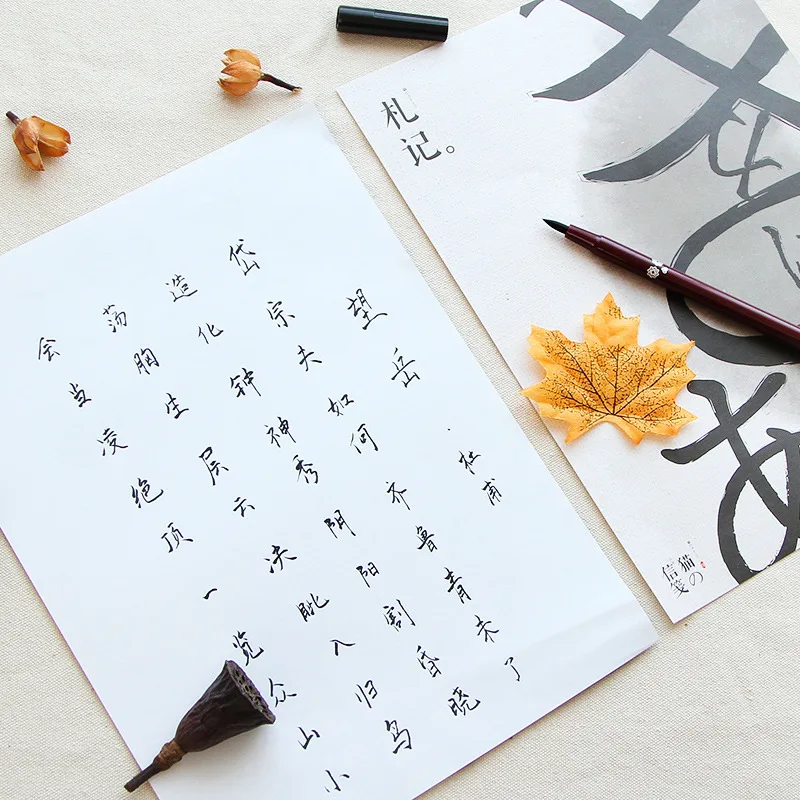 望岳·杜甫
岱宗夫如何 齐鲁青未了
造化钟神秀 阴阳割昏晓
荡胸生层云 决眦入归鸟
会当凌绝顶 一览众山小
札记。
猫の
信笺